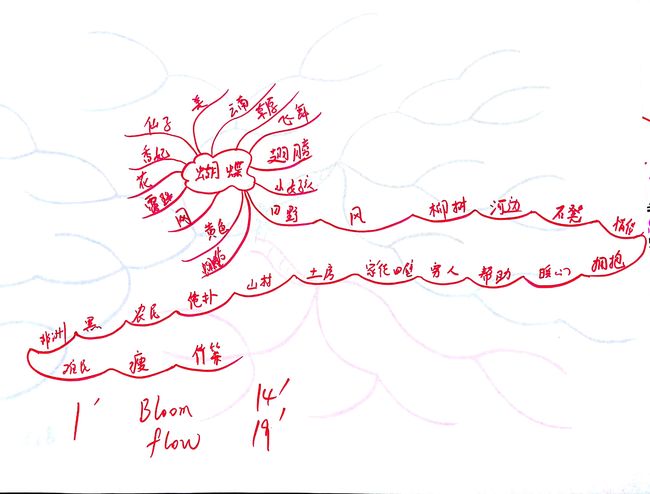 蝴蝶
美
云南
草原
飞舞
翅膀
小女孩
仙子
香妃
花
网
黄色
田野
风
柳树
河边
石凳
情侣
拥抱
暖心
帮助
穷人
家徒四壁
土房
山村
俭朴
农民
黑
非洲
难民
瘦
竹竿
1′ Bloom 14′
flow 19′